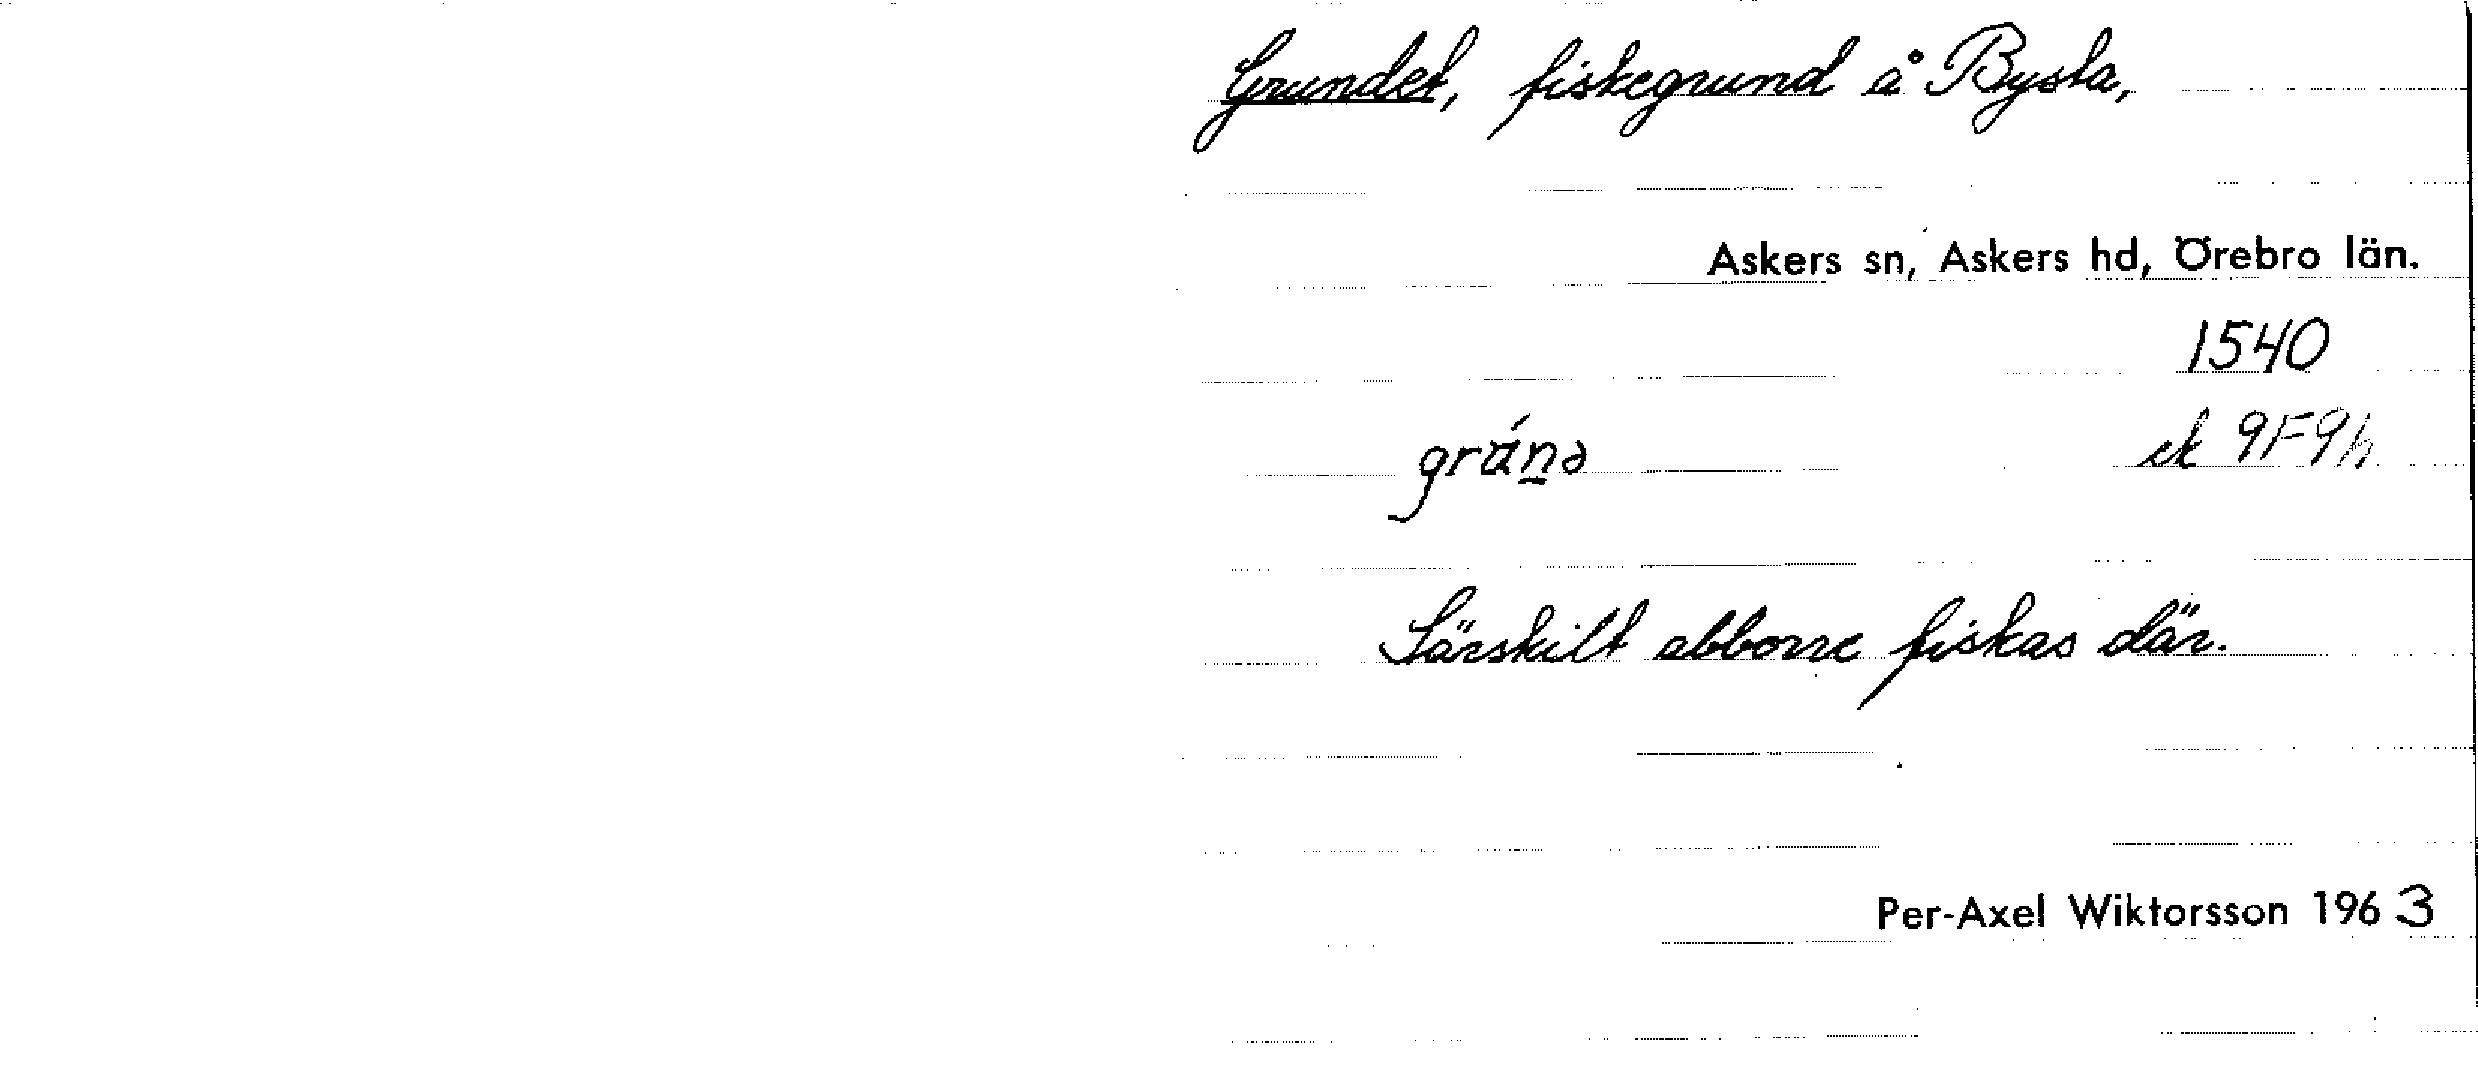 Grundet, fiskegrund å Bysta,
Askers sn, Askers hd, Örebro län.
1540
gráṉə
ek 9F9h
Särskilt abborre fiskas där.
Per-Axel Wiktorsson 1963